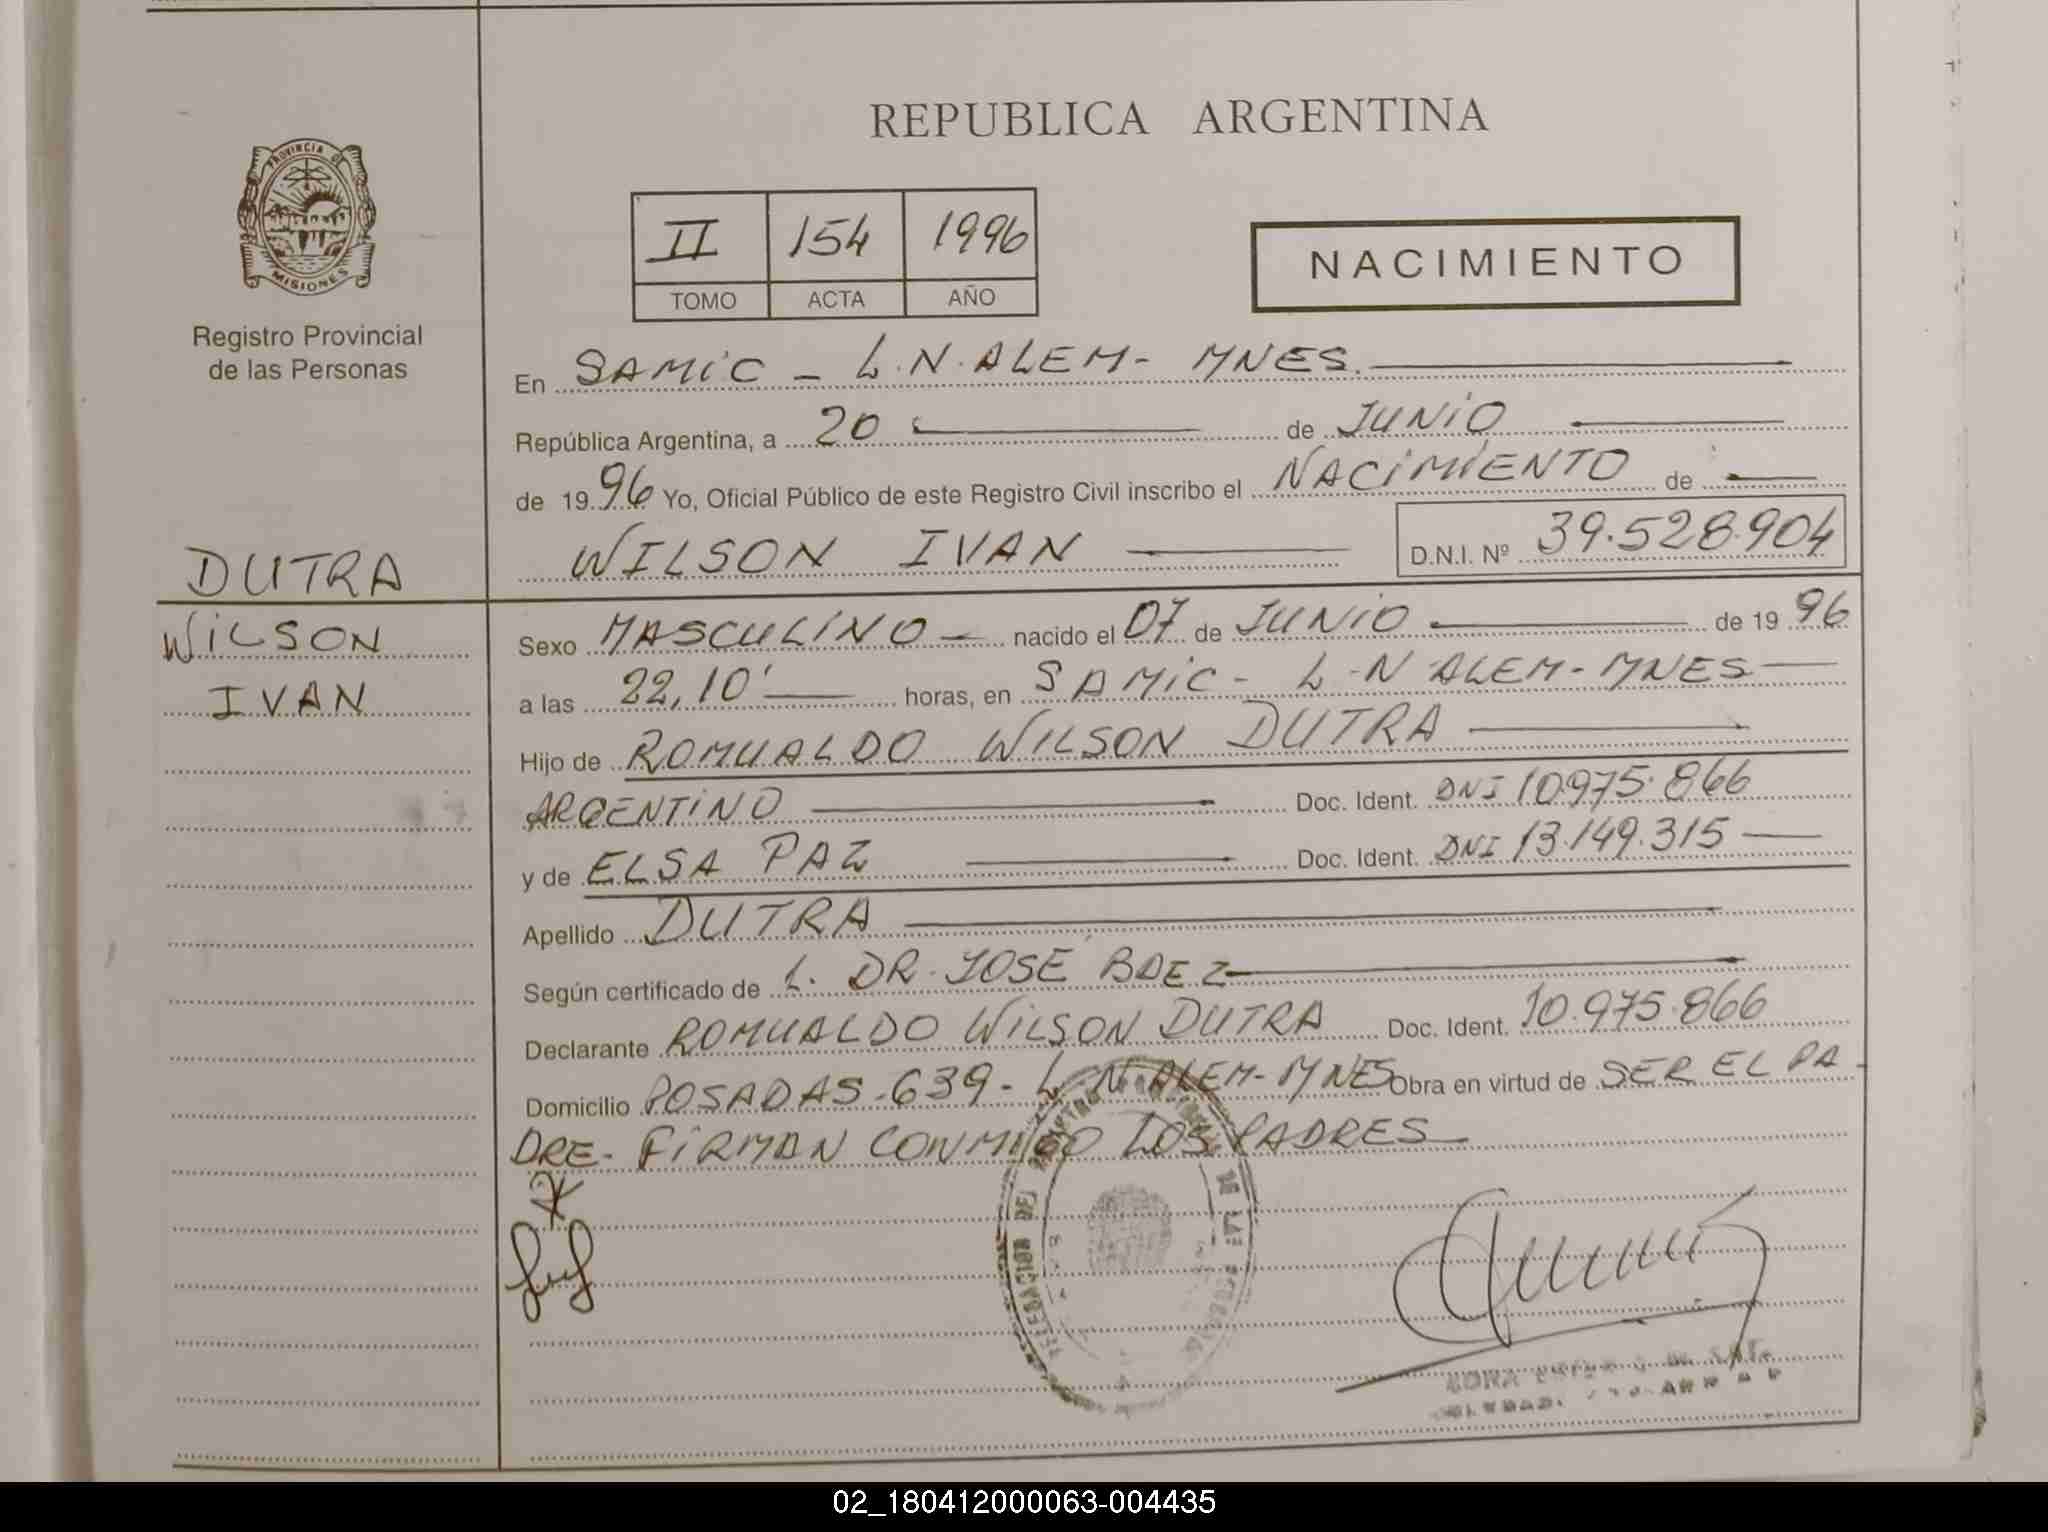 REPUBLICA ARGENTINA
PROVINCIA DE
MISIONES
Registro Provincial
de las Personas
II 154 1996
TOMO ACTA AÑO
NACIMIENTO
En SAMIC - L.N. ALEM - MNES.
República Argentina, a 20 de JUNIO
de 1996 Yo, Oficial Público de este Registro Civil inscribo el NACIMIENTO de
WILSON IVAN D.N.I. Nº 39.528.904
DUTRA
WILSON
IVAN
Sexo MASCULINO nacido el 07 de JUNIO de 1996
a las 22,10' horas, en SAMIC - L.N ALEM - MNES
Hijo de ROMUALDO WILSON DUTRA
ARGENTINO Doc. Ident. DNI 10.975.866
y de ELSA PAZ Doc. Ident. DNI 13.149.315
Apellido DUTRA
Según certificado de L. DR. JOSÉ BAEZ
Declarante ROMUALDO WILSON DUTRA Doc. Ident. 10.975.866
Domicilio POSADAS - 639 - L N ALEM - MNES Obra en virtud de SER EL PA-
DRE - FIRMAN CONMIGO LOS PADRES
02_180412000063-004435